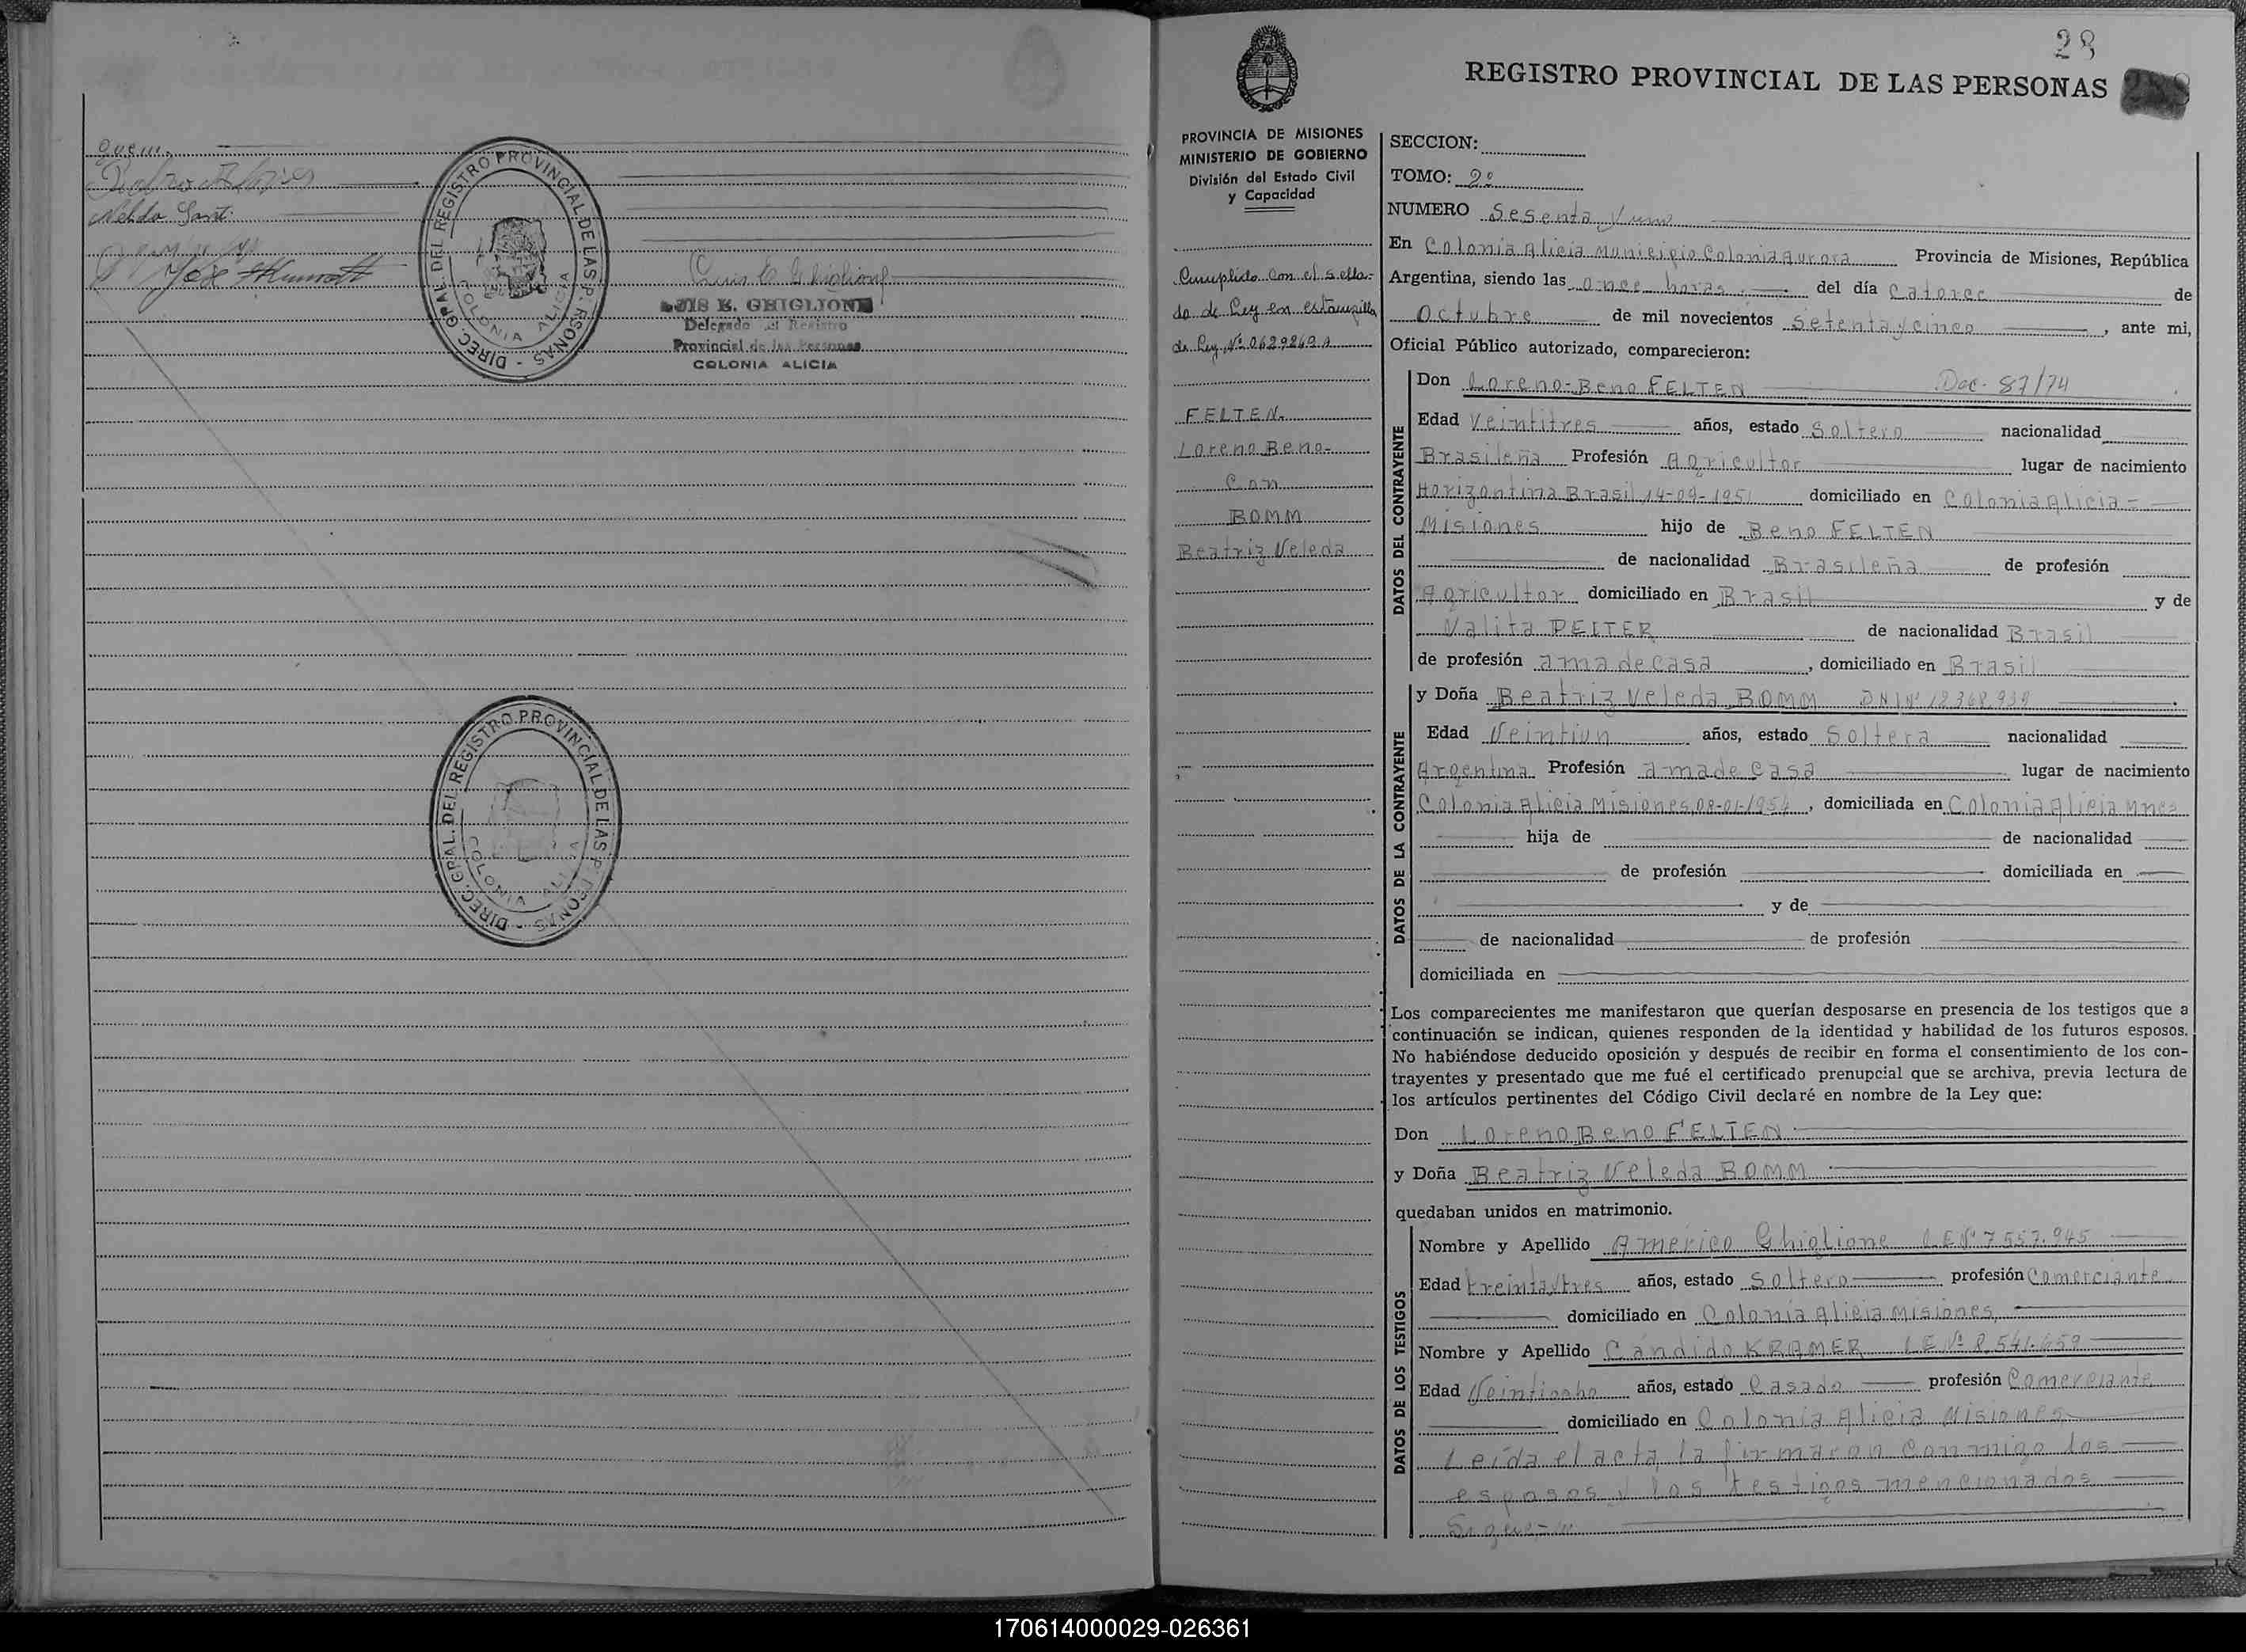 que...
Nelda Sant.
José Kunrath
DIREC. GRAL. DEL REGISTRO PROVINCIAL DE LAS PERSONAS - COLONIA ALICIA
Luis E Ghiglione
LUIS E. GHIGLIONE
Delegado del Registro
Provincial de las Personas
COLONIA ALICIA
DIREC. GRAL. DEL REGISTRO PROVINCIAL DE LAS PERSONAS - COLONIA ALICIA
28
REGISTRO PROVINCIAL DE LAS PERSONAS
PROVINCIA DE MISIONES
MINISTERIO DE GOBIERNO
División del Estado Civil
y Capacidad
Cumplido con el sella-
do de Ley en estampilla
de Ley Nº 0629869 A
FELTEN
Loreno Beno-
Con
BOMM
Beatriz Neleda
SECCION:
TOMO: 2º
NUMERO Sesenta y uno
En Colonia Alicia Municipio Colonia Aurora Provincia de Misiones, República
Argentina, siendo las once horas. del día Catorce de
Octubre de mil novecientos Setenta y cinco, ante mi,
Oficial Público autorizado, comparecieron:
DATOS DEL CONTRAYENTE
Don Loreno-Beno FELTEN Doc. 87/74
Edad Veintitres años, estado Soltero nacionalidad
Brasileña Profesión Agricultor lugar de nacimiento
Horizontina Brasil, 14-09-1951 domiciliado en Colonia Alicia-
Misiones hijo de Beno FELTEN
de nacionalidad Brasileña de profesión
Agricultor domiciliado en Brasil y de
Nalita DEITER de nacionalidad Brasil
de profesión ama de casa, domiciliado en Brasil
DATOS DE LA CONTRAYENTE
y Doña Beatriz Neleda BOMM DNI Nº 12.368.939
Edad Veintiun años, estado Soltera nacionalidad
Argentina Profesión ama de casa lugar de nacimiento
Colonia Alicia Misiones, 08-01-1954, domiciliada en Colonia Alicia Mnes
hija de de nacionalidad
de profesión domiciliada en
y de
de nacionalidad de profesión
domiciliada en
Los comparecientes me manifestaron que querían desposarse en presencia de los testigos que a
continuación se indican, quienes responden de la identidad y habilidad de los futuros esposos.
No habiéndose deducido oposición y después de recibir en forma el consentimiento de los con-
trayentes y presentado que me fué el certificado prenupcial que se archiva, previa lectura de
los artículos pertinentes del Código Civil declaré en nombre de la Ley que:
Don Loreno Beno FELTEN
y Doña Beatriz Neleda BOMM
quedaban unidos en matrimonio.
DATOS DE LOS TESTIGOS
Nombre y Apellido Americo Ghiglione L.E Nº 7.557.945
Edad treinta y tres años, estado Soltero profesión Comerciante
domiciliado en Colonia Alicia Misiones,
Nombre y Apellido Cándido KRAMER L E Nº 8.541.659
Edad Veintiocho años, estado Casado profesión Comerciante
domiciliado en Colonia Alicia Misiones
Leída el acta, la firmaron conmigo los
esposos y los testigos mencionados
Sigue-///
170614000029-026361